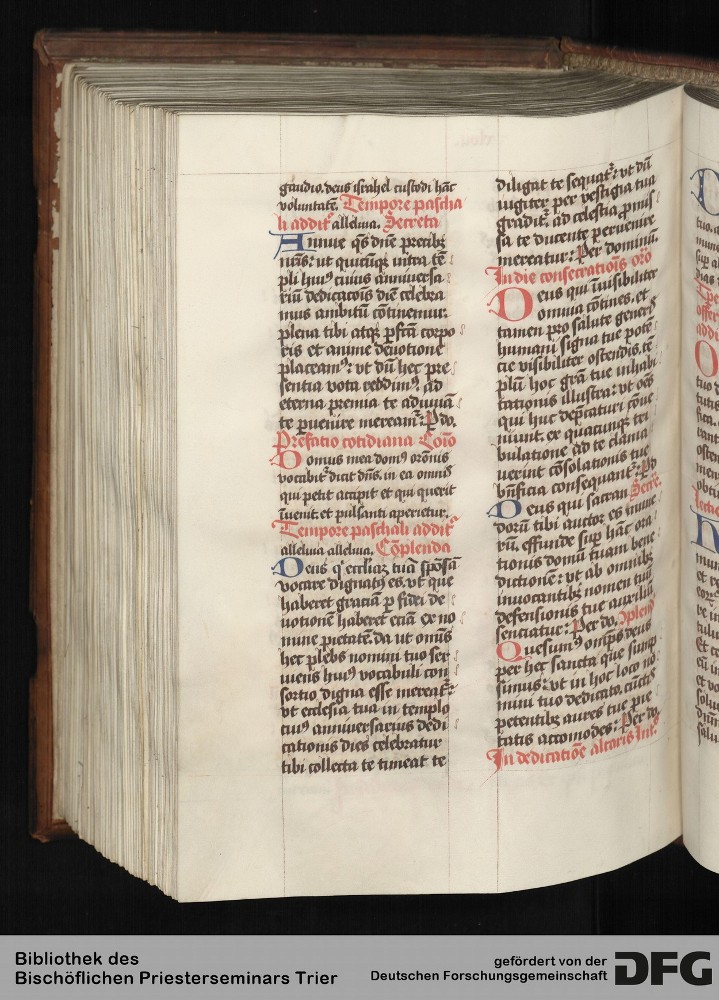 gaudio. deus israhel custodi hāc
voluntatē. Tempore pascha
li additᷣ alleluia. Secreta
Annue qs dn̄e precibꝫ
nr̄is: ut quicūqꝫ intra tē
pli huiꝰ cuius anniuersa
riū dedicacōis diē celebra
mus ambitū cōtinemur.
plena tibi atqꝫ ꝑfcā corpo
ris et anime deuotione
placeamꝰ: vt dū hec pre
sentia vota reddimꝰ. ad
eterna premia te adiuuā
te ꝑuenire mereamᷣ. Ꝑ do.
Prefatio cotidiana Cōio
Domus mea domꝰ orōnis
vocabitᷣ dicit dn̄s. in ea omnis
qui petit accipit et qui querit
īuenit. et pulsanti aperietur.
Tempore paschali additᷣ
alleluia alleluia. Cōplenda
Deus qͥ eccliaꝫ tuā spōsā
vocare dignatꝰ es. vt que
haberet graciā ꝑ fidei de
uotionē haberet eciā ex no
mine pietatē. da ut omīs
hec plebs nomini tuo ser
uiens huiꝰ vocabuli con
sortio digna esse mereatᷣ:
vt ecclesia tua in templo
cuiꝰ anniuersarius dedi
cationis dies celebratur
tibi collecta te timeat te
diligat te sequatᷣ: vt dū
iugiter per vestigia tua
graditᷣ. ad celestia ꝓmis
sa te ducente peruenire
mereatur: Per dominū.
In die consecrationis orō
Deus qui īuisibiliter
omnia cōtines. et
tamen pro salute generis
humani signa tue potē
cie visibiliter ostendis. tē
plū hoc grā tue inhabi
tationis illustra: vt oēs
qui huc dep̄caturi cōue
niunt. ex quacunqꝫ tri
bulatione ad te clama
uerint cōsolationis tue
bn̄ficia consequantᷣ: Ꝑ d
Deus qui sacran Secrē.
dorū tibi auctor es mune
rū. effunde suꝑ hāc ora
tionis domū tuam bene
dictionē: vt ab omnibꝫ
inuocantibꝫ nomen tuū
defensionis tue auxiliū
senciatur: Per do. 9plend
Quesumꝰ omīps deus
per hec sancta que sump
simus: vt in hoc loco no
mini tuo dedicato. cūctis
petentibꝫ aures tue pie
tatis accomodes: Per do.
In dedicatiōe altaris Intᷣ.
Bibliothek des
Bischöflichen Priesterseminars Trier
gefördert von der
Deutschen Forschungsgemeinschaft
DFG